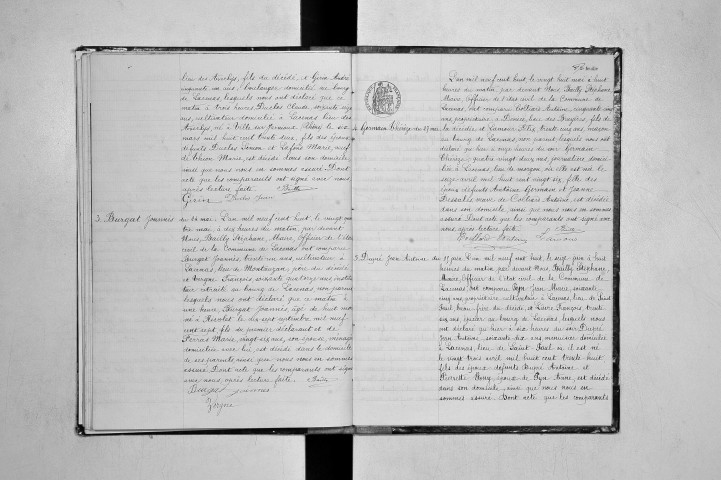 lieu des Averlys, fils du décédé, et Girin André
cinquante un ans, boulanger domicilié au bourg
de Lacenas, lesquels nous ont déclaré que ce
matin à trois heures Duclos Claude soixante sept
ans, cultivateur domicilié à Lacenas lieu des
né à Ville sur Jarnioux Rhône le six
mars mil huit cent trente deux, fils des époux
défunts Duclos Simon et Lafond Marie, veuf
de Chion Marie, est décédé dans son domicile
ainsi que nous nous en sommes assuré. Dont
acte que les comparants ont signé avec nous
après lecture faite.
Girin Duclos Jean
3. Burgat Joannès
du 24 mai. L'an mil neuf cent huit, le vingt quatre
mai, à dix heures du matin, par devant
Nous, Bailly Stéphane, Maire, Officier de l'état
civil de la Commune de Lacenas, ont comparu
Burgat Joannès, trente un ans, cultivateur à
Lacenas, lieu de Montauzan, père du décédé
et Vergne François soixante quatorze ans institu
teur retraité au bourg de Lacenas non parent
lesquels nous ont déclaré que ce matin à
une heure, Burgat Joannès, âgé de huit mois
né à Rivolet le dix sept septembre mil neuf
cent sept fils du premier déclarant et de
Perras Marie, vingt six ans, son épouse, ménagère
domiciliée avec lui, est décédé dans le domicile
de ses parents, ainsi que nous nous en sommes
assuré. Dont acte que les comparants ont signé
avec nous, après lecture faite.
Burgat Joannès
Vergne
4. Germain Thérèse
du 28 mai
L'an mil neuf cent huit le vingt huit mai à huit
heures du matin par devant Nous Bailly Stéphane
Maire, Officier de l'état civil de la Commune de
Lacenas, ont comparu Collonge Antoine, cinquante
ans propriétaire à Denicé, lieu des Bruyères, fils de
la décédée, et Lamour Félix, trente cinq ans,
au bourg de Lacenas, non parent, lesquels nous ont
déclaré qu'hier à onze heures du soir Germain
Thérèse, quatre vingt deux ans, journalière, domici
liée à Lacenas, lieu de morgon, où elle est née le
mil huit cent vingt six fille des
époux défunts Antoine Germain et Jeanne
veuve de Collonge Antoine, est décédée
dans son domicile, ainsi que nous nous en sommes
assuré. Dont acte que les comparants ont signé avec
nous, après lecture faite.
5. Dupré Jean Antoine
du 17 juin. L'an mil neuf cent huit, le dix sept juin à huit
heures du matin par devant Nous, Bailly Stéphane
Maire, Officier de l'état civil de la Commune de
Lacenas, ont comparu Pyn Jean Marie, soixante
cinq ans propriétaire cultivateur à Lacenas, lieu de Saint
Paul, beau frère du décédé, et Louis François, trente
six ans épicier au bourg de Lacenas, lesquels nous
ont déclaré qu'hier à six heures du soir Dupré
Jean Antoine, soixante dix ans menuisier domicilié
à Lacenas, lieu de Saint Paul où il est né
le vingt trois avril mil huit cent trente huit
fils des époux défunts Dupré Antoine et
Pierrette époux de Pyn Anne, est décédé
dans son domicile, ainsi que nous nous en
sommes assuré. Dont acte que les comparants